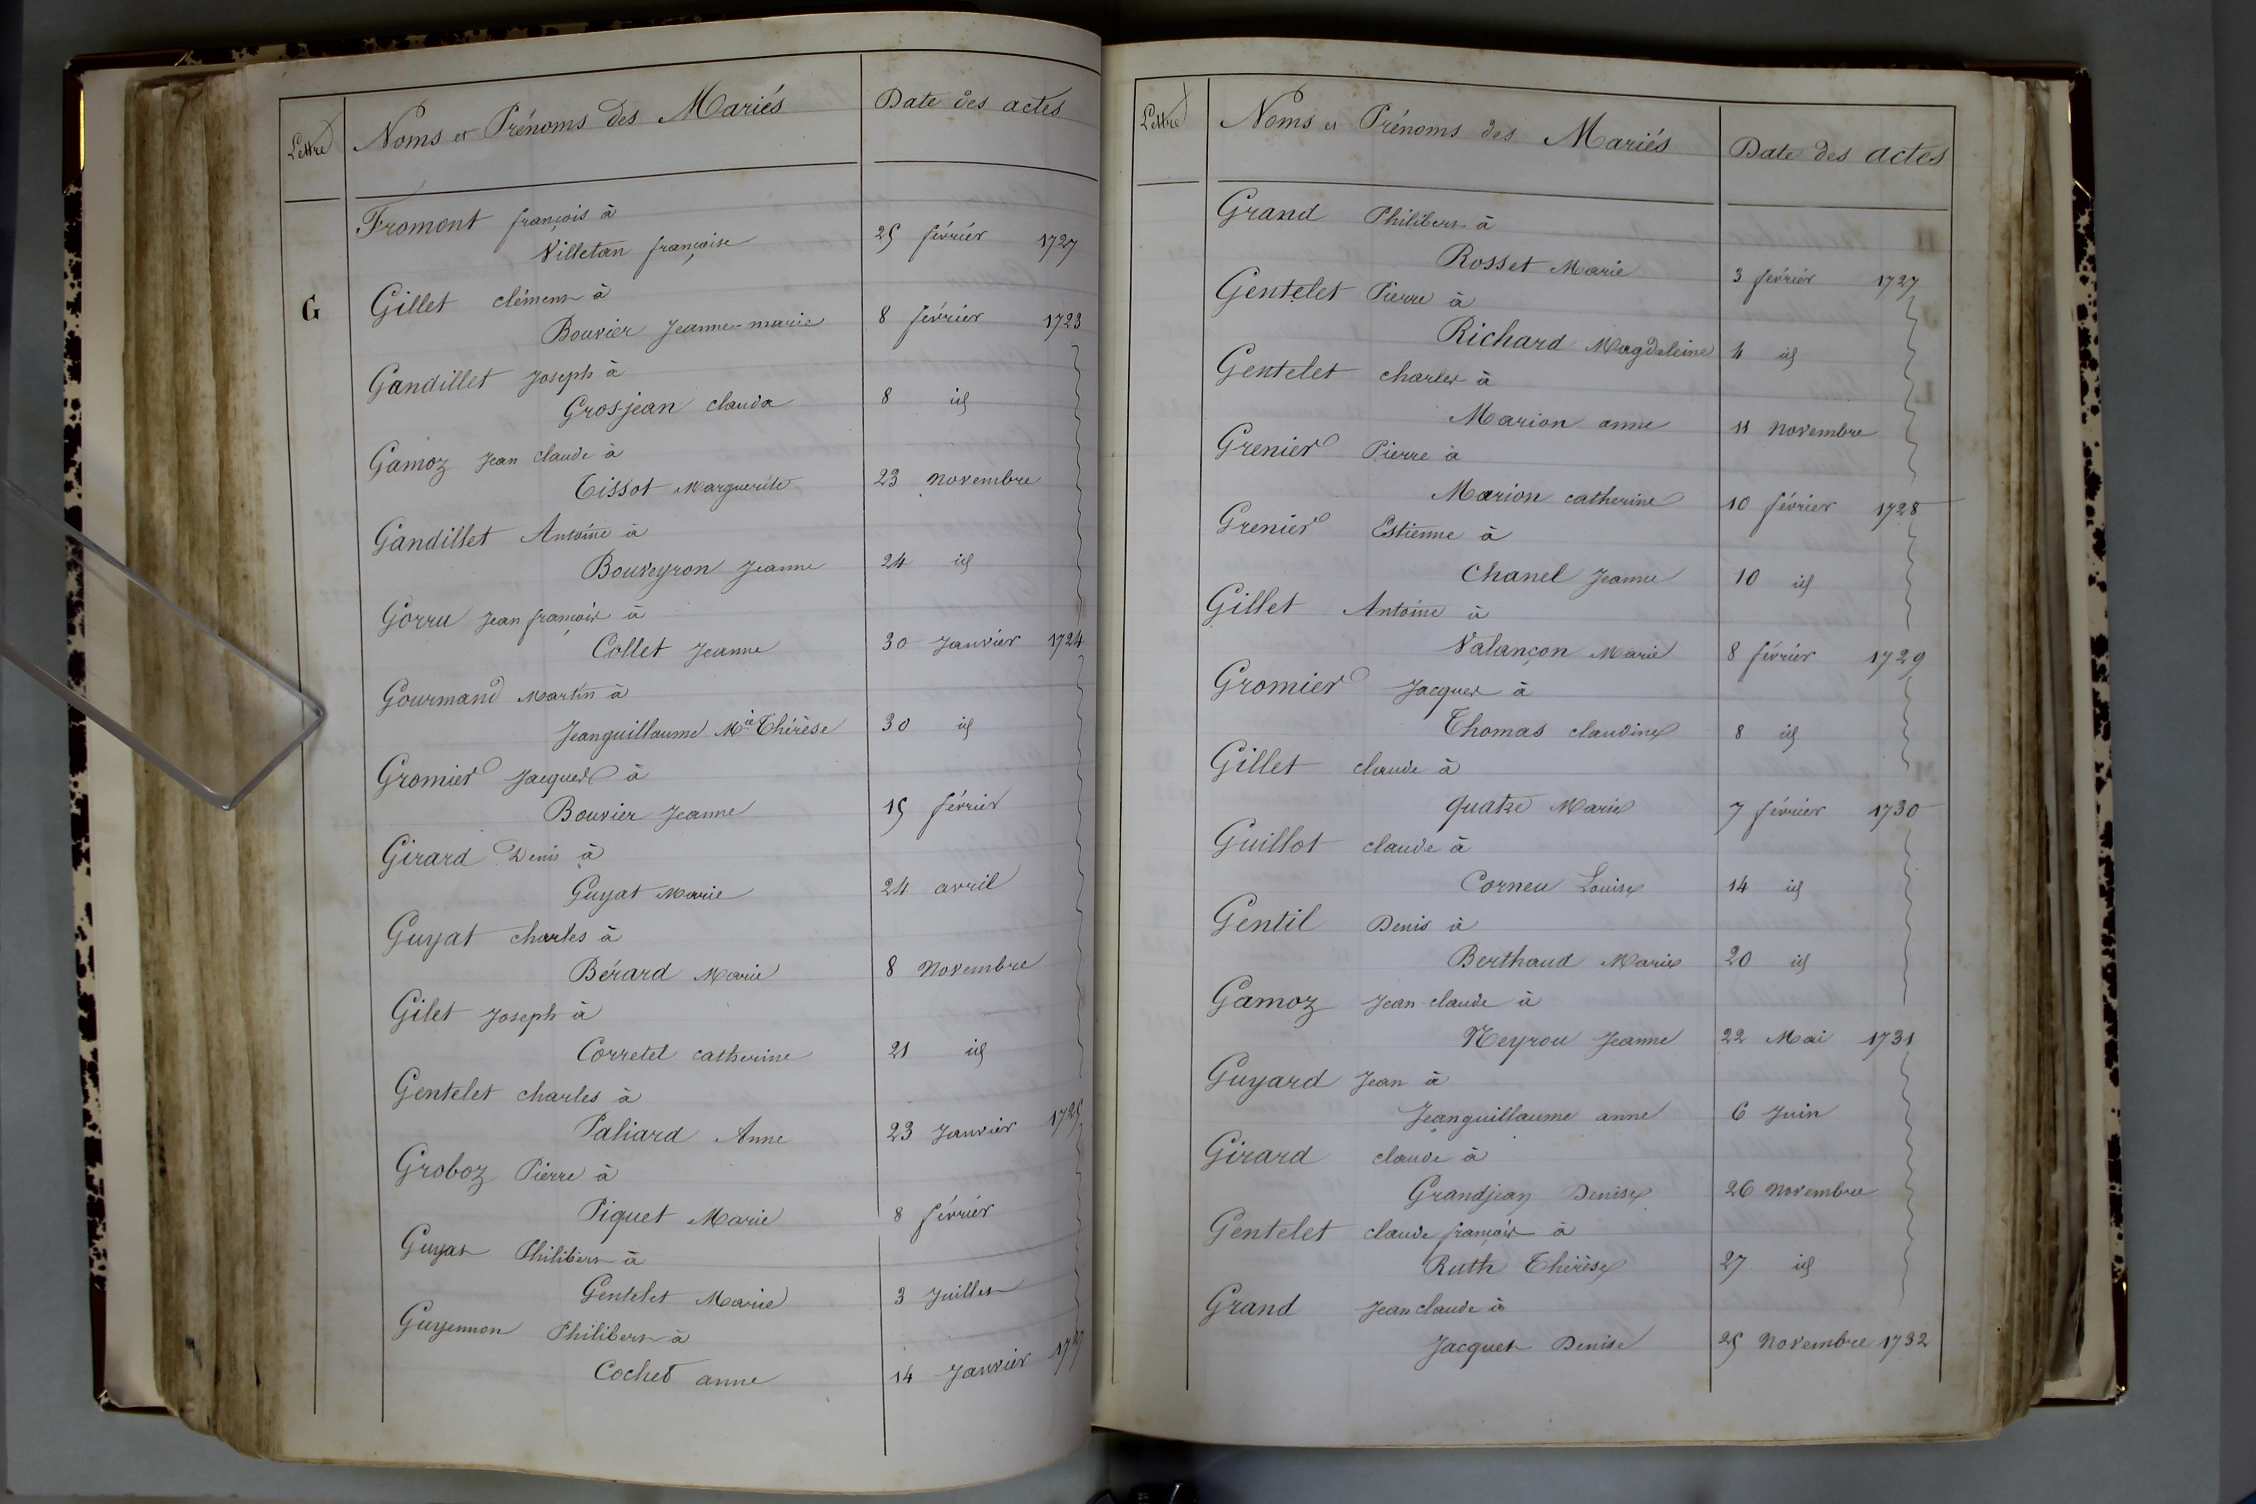 Lettre Noms et Prénoms des Mariés Date des actes
Fromont françois à
Villetan françoise 25 février 1727
G Gillet clément à
Bouvier Jeanne-marie 8 février 1723
Gandillet Joseph à
Grosjean clauda 8 id
Gamoz Jean claude à
Tissot Marguerite 23 novembre
Gandillet Antoine à
Bouveyron Jeanne 24 id
Gorru Jean françois à
Collet Jeanne 30 Janvier 1724
Gourmand Martin à
Jeanguillaume Mie Thérèse 30 id
Gromier Jacques à
Bouvier Jeanne 15 février
Girard Denis à
Guyat Marie 24 avril
Guyat charles à
Bérard Marie 8 Novembre
Gilet Joseph à
Corretel catherine 21 id
Gentelet charles à
Paliard Anne 23 Janvier 1725
Groboz Pierre à
Piquet Marie 8 février
Guyat Philibert à
Gentelet Marie 3 Juillet
Guyennon Philibert à
Cochet anne 14 Janvier
Lettre Noms et Prénoms des Mariés Date des actes
Grand Philibert à
Rosset Marie 3 février 1727
Gentelet Pierre à
Richard Magdeleine 4 id
Gentelet charles à
Marion anne 11 Novembre
Grenier Pierre à
Marion catherine 10 février 1728
Grenier Estienne à
Chanel Jeanne 10 id
Gillet Antoine à
Valançon Marie 8 février 1729
Gromier Jacques à
Thomas claudine 8 id
Gillet claude à
quatre Marie 7 février 1730
Guillot claude à
Corneu Louise 14 id
Gentil Denis à
Berthaud Marie 20 id
Gamoz Jean-claude à
Neyrou Jeanne 22 Mai 1731
Guyard Jean à
Jeanguillaume anne 6 Juin
Girard claude à
Grandjean Denise 26 Novembre
Gentelet claude françois à
Ruth Thérèse 27 id
Grand Jean claude à
Jacquet Denise 25 Novembre 1732